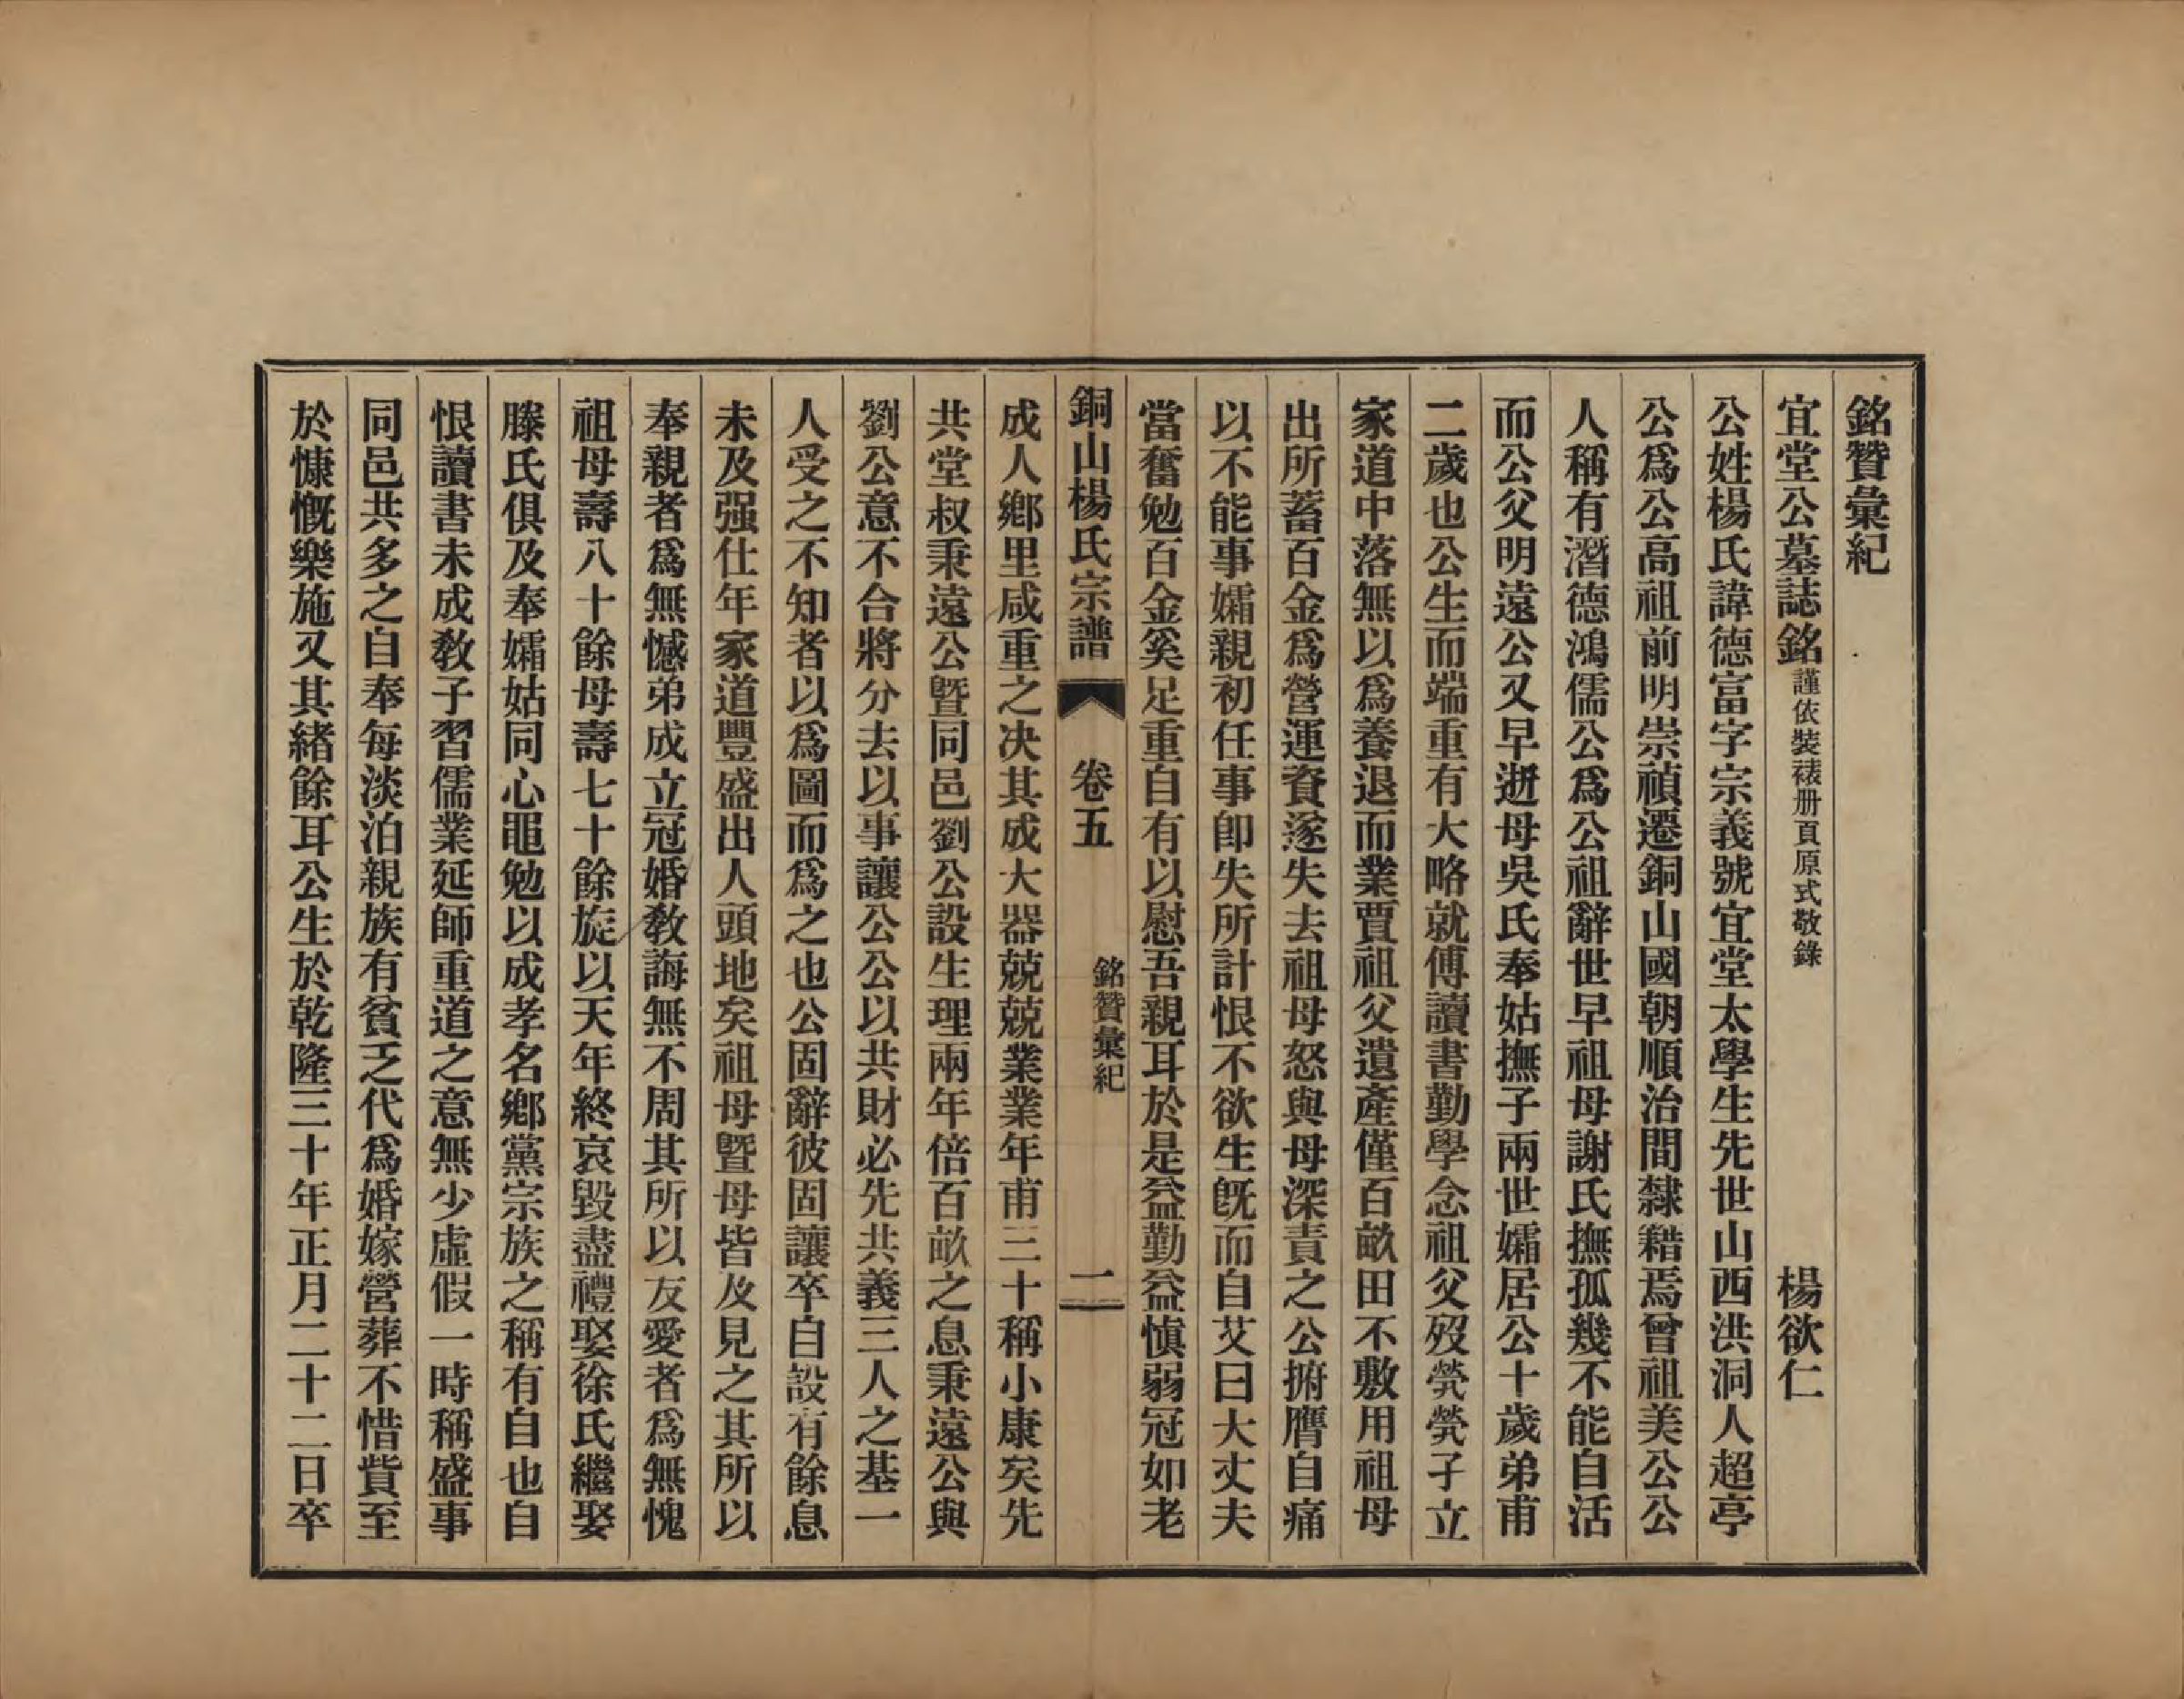 銘贊彙紀
宜堂公墓誌銘謹依裝裱册頁原式敬錄 楊欲仁
公姓楊氏諱德富字宗義號宜堂太學生先世山西洪洞人超亭
公爲公高祖前明崇禎遷銅山國朝順治間隸籍焉曾祖美公公
人稱有濳德鴻儒公爲公祖辭世早祖母謝氏撫孤幾不能自活
而公父明遠公又早逝母吳氏奉姑撫子兩世孀居公十歲弟甫
二歲也公生而端重有大略就傅讀書勤學念祖父歿煢煢孑立
家道中落無以爲養退而業賈祖父遺產僅百畝田不敷用祖母
出所蓄百金爲營運資遂失去祖母怒與母深責之公拊膺自痛
以不能事孀親初任事卽失所計恨不欲生旣而自艾曰大丈夫
當奮勉百金奚足重自有以慰吾親耳於是益勤益愼弱冠如老
銅山楊氏宗譜 卷五 銘贊彙紀 二
成人鄉里咸重之决其成大器兢兢業業年甫三十稱小康矣先
共堂叔秉遠公曁同邑劉公設生理兩年倍百畝之息秉遠公與
劉公意不合將分去以事讓公公以共財必先共義三人之基一
人受之不知者以爲圖而爲之也公固辭彼固讓卒自設有餘息
未及强仕年家道豐盛出人頭地矣祖母曁母皆及見之其所以
奉親者爲無憾弟成立冠婚敎誨無不周其所以友愛者爲無愧
祖母壽八十餘母壽七十餘旋以天年終哀毀盡禮娶徐氏繼娶
滕氏俱及奉孀姑同心黽勉以成孝名鄉黨宗族之稱有自也自
恨讀書未成敎子習儒業延師重道之意無少虛假一時稱盛事
同邑共多之自奉每淡泊親族有貧乏代爲婚嫁營葬不惜貲至
於慷慨樂施又其緒餘耳公生於乾隆三十年正月二十二日卒